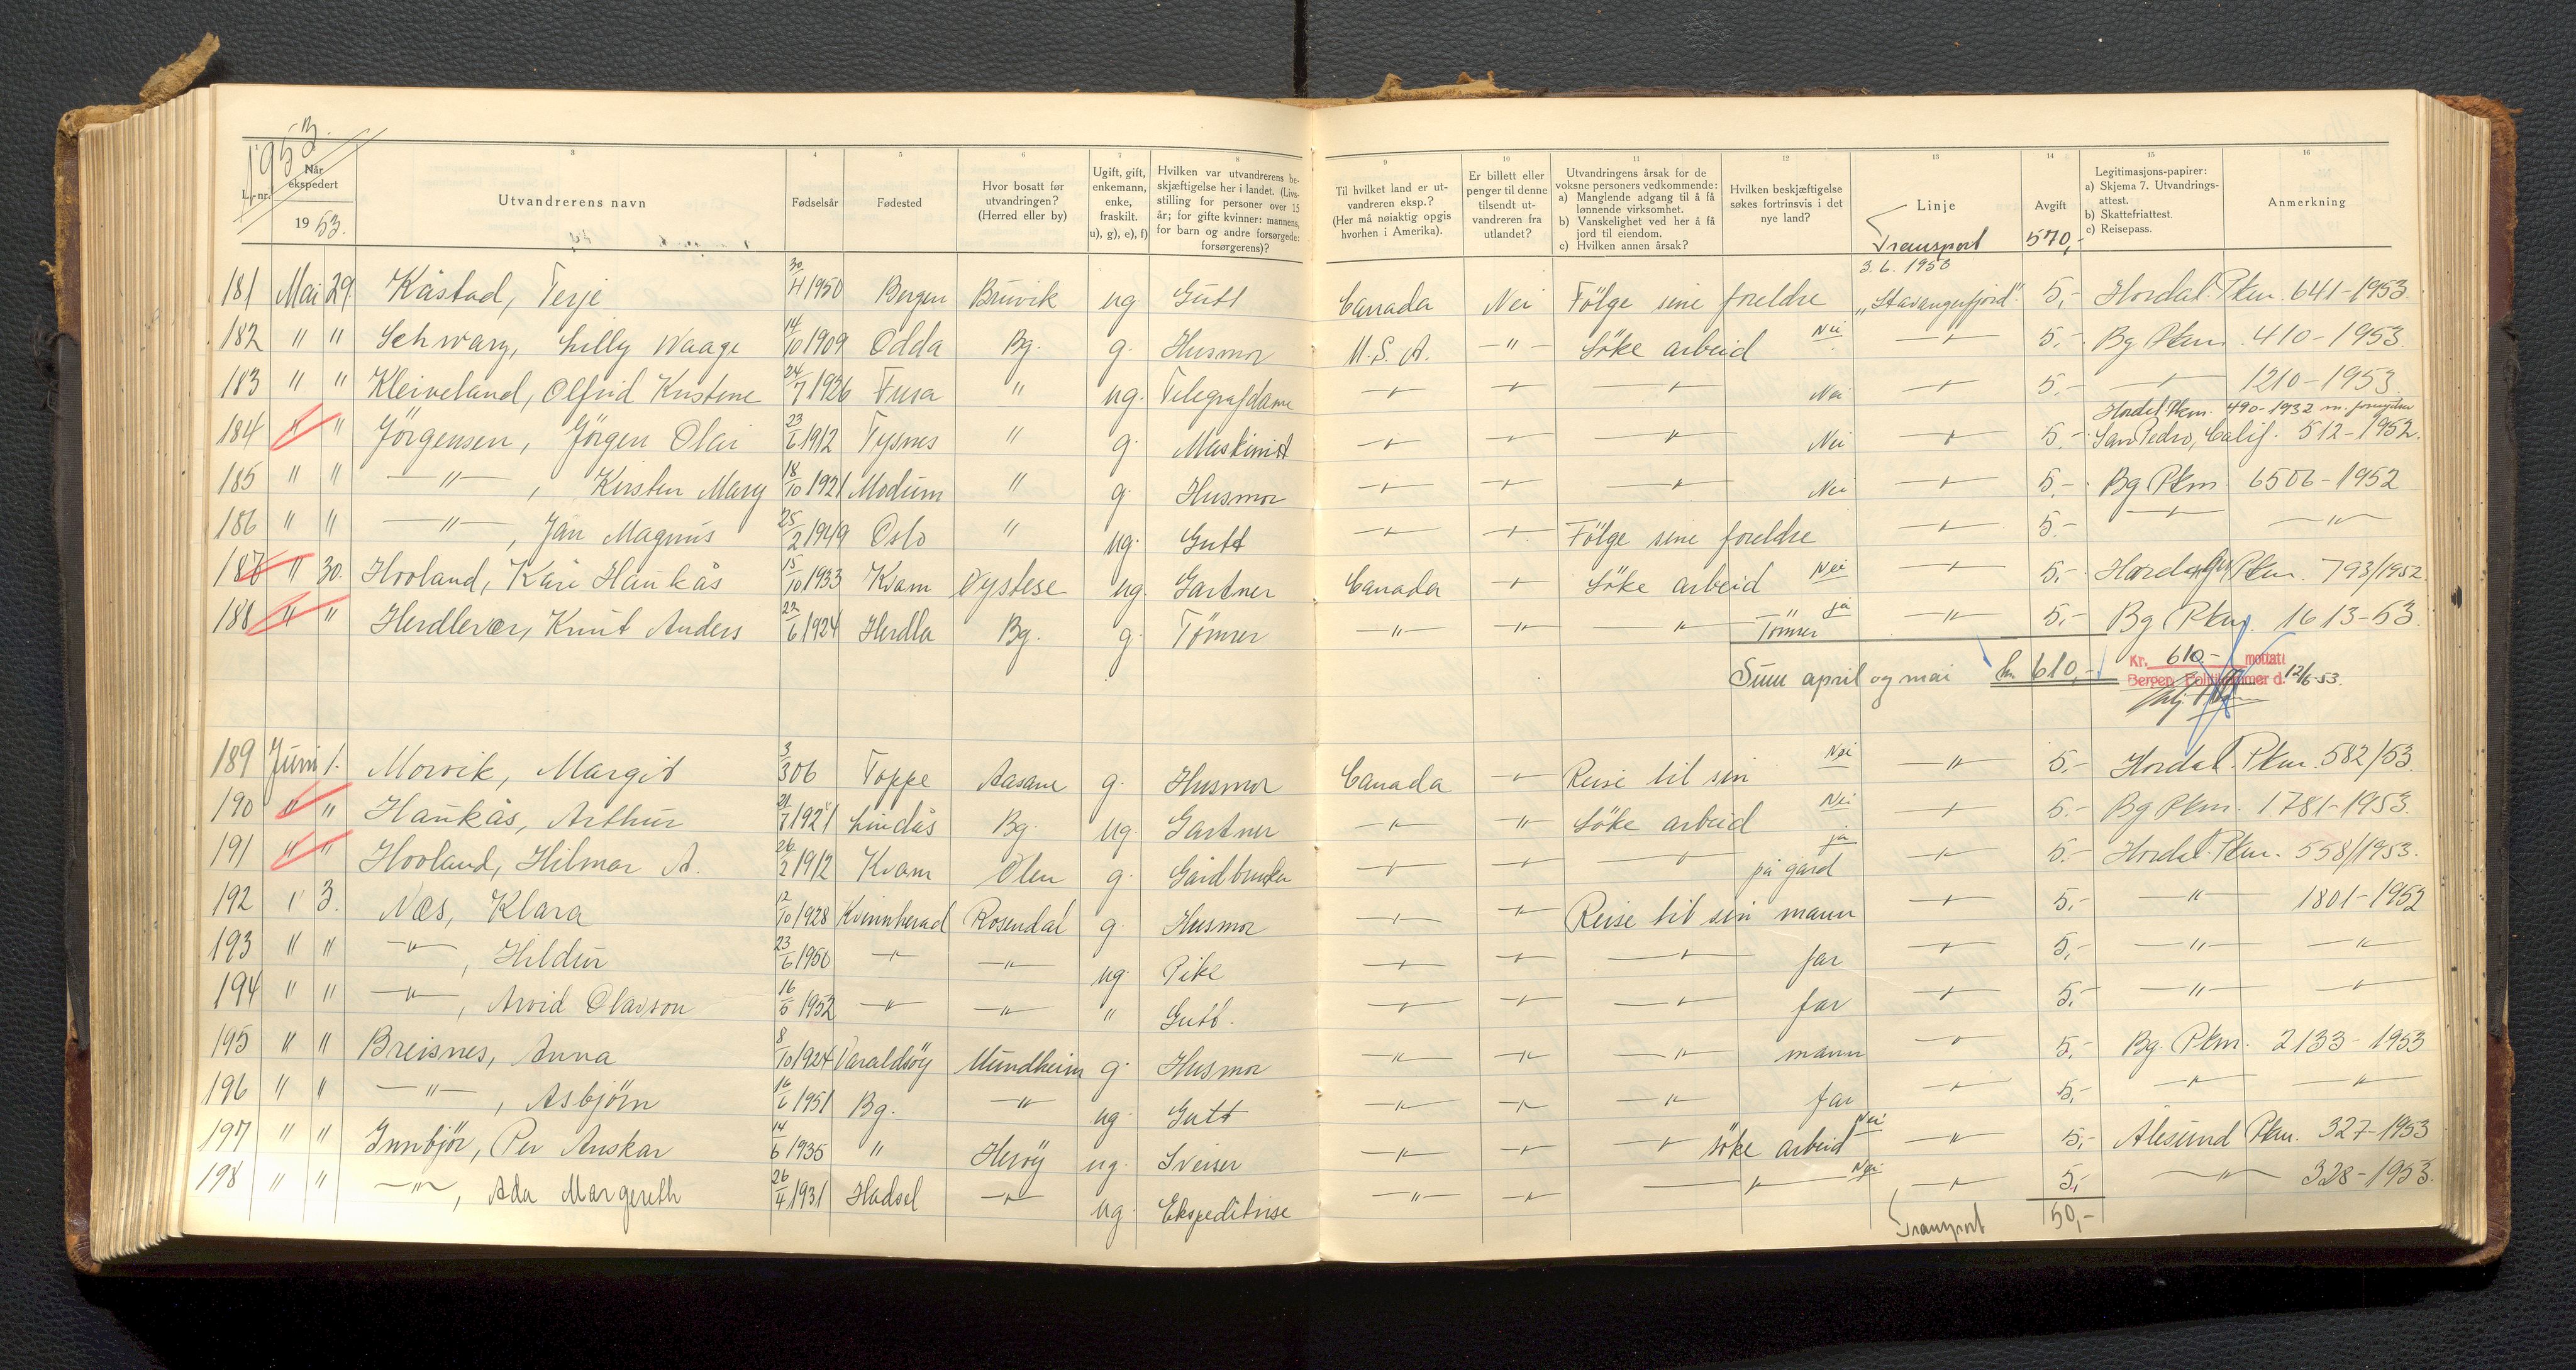 1953
L.-nr.
Når ekspedert
1953.
3
Utvandrerens navn
4
Fødselsår
5
Fødested
6
Hvor bosatt før utvandringen? (Herred eller by)
7
Ugift, gift, enkemann, enke, fraskilt. u), g), e), f)
8
Hvilken var utvandrerens beskjæftigelse her i landet. (Livsstilling for personer over 15 år; for gifte kvinner: mannens, for barn og andre forsørgede: forsørgerens)?
9
Til hvilket land er utvandreren eksp.? (Her må nøiaktig opgis hvorhen i Amerika).
10
Er billett eller penger til denne tilsendt utvandreren fra utlandet?
11
Utvandringens årsak for de voksne personers vedkommende:
a) Manglende adgang til å få lønnende virksomhet.
b) Vanskelighet ved her å få jord til eiendom.
c) Hvilken annen årsak?
12
Hvilken beskjæftigelse søkes fortrinsvis i det nye land?
13
Linje
14
Avgift
15
Legitimasjons-papirer:
a) Skjema 7. Utvandringsattest.
b) Skattefriattest.
c) Reisepass.
16
Anmerkning
Transport 570,-
3.6.1953
181 Mai 29 Kåstad, Terje 30/4 1950 Bergen Bruvik ug Gutt Canada Nei Følge sine foreldre „Stavangerfjord" 5,- Hordal. Pkm. 641-1953
182 " " Schwarz, Lilly Waage 14/10 1909 Odda Bg. g. Husmor U.S.A. -"- Söke arbeid Nei -"- 5,- Bg Pkm. 410-1953.
183 " " Kleiveland, Olfrid Kristine 24/7 1926 Fusa " ug. Telegrafdame -"- -"- -"- Nei -"- 5,- -"- 1210-1953
Hordal. Pkm. 490-1932 m. fornyelse
184 " " Jörgensen, Jörgen Olai 23/6 1912 Tysnes " g. Maskinist -"- -"- -"- Nei -"- 5,- San Pedro, Calif. 512-1952.
185 " " -"-, Kirsten Mary 18/10 1921 Modum " g. Husmor -"- -"- -"- Nei -"- 5,- Bg Pkm. 6506-1952
186 " " -"-, Jan Magnus 25/2 1949 Oslo " ug. Gutt -"- -"- Følge sine foreldre -"- 5,- -"- -"-
187 " 30. Hooland, Kåre Haukås 15/10 1933 Kvam Öystese ug Gartner Canada -"- Söke arbeid Nei -"- 5,- Hardanger Pkm. 793/1952
188 " " Herdlevær, Knut Anders 22/6 1924 Herdla Bg. g. Tömrer -"- -"- -"- -"- ja Tömrer -"- 5,- Bg Pkm. 1613-53
Sum april og mai kr. 610,- Kr. 610.- mottatt
Bergen Politikammer d. 12/6-53.
189 Juni 1. Morvik, Margit 3/3 06 Toppe Aasane g. Husmor Canada -"- Reise til sin Nei -"- 5,- Hordal. Pkm. 582/53
190 " " Haukås, Arthur 21/7 1921 Lindås Bg. ug. Gartner -"- -"- Söke arbeid Nei -"- 5,- Bg Pkm. 1781-1953.
191 " " Hooland, Hilmar A. 26/2 1912 Kvam Ölen g. Gårdbruker -"- -"- -"- ja på gård -"- 5,- Hordal. Pkm. 558/1953.
192 " 3. Næs, Klara 12/10 1928 Kvinnherad Rosendal g. Husmor -"- -"- Reise til sin mann -"- 5,- -"- 1801-1952
193 " " -"-, Hildur 23/6 1950 -"- -"- ug. Pike -"- -"- -"- far -"- 5,- -"- -"-
194 " " -"-, Arvid Olavson 16/5 1952 -"- -"- " Gutt. -"- -"- -"- far -"- 5,- -"- -"-
195 " " Breisnes, Anna 8/10 1924 Varaldsöy Mundheim g. Husmor -"- -"- -"- mann -"- 5,- Bg. Pkm. 2133-1953
196 " " -"-, Asbjörn 16/6 1951 Bg. -"- ug. Gutt -"- -"- -"- far -"- 5,- -"- -"-
197 " " Innbjör, Per Anskar 14/6 1935 " Heröy ug. Sveiser -"- -"- -"- söke arbeid Nei -"- 5,- Ålesund Pkm. 327-1953
198 " " -"-, Ada Margereth 26/4 1931 Hadsel -"- ug. Ekspeditrise -"- -"- -"- Nei -"- 5,- -"- 328-1953.
Transport 50,-